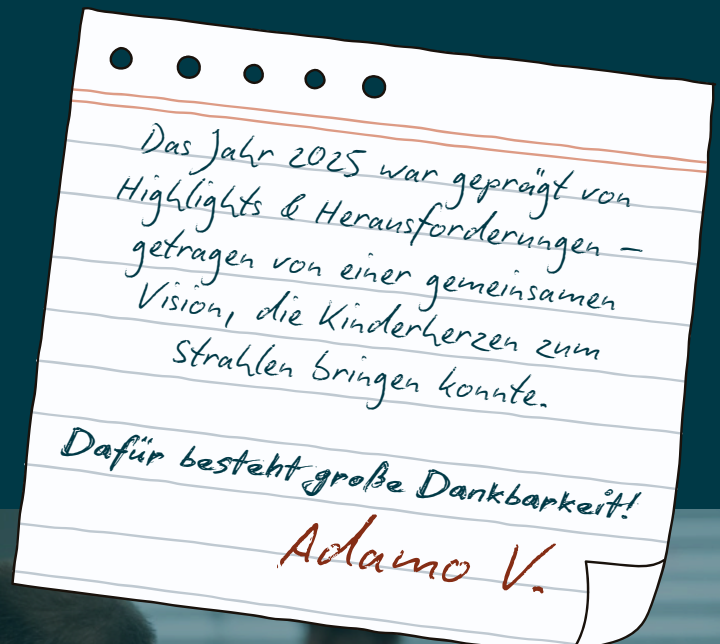 Das Jahr 2025 war geprägt von
Highlights & Herausforderungen –
getragen von einer gemeinsamen
Vision, die Kinderherzen zum
Strahlen bringen konnte.
Dafür besteht große Dankbarkeit!
Adamo V.